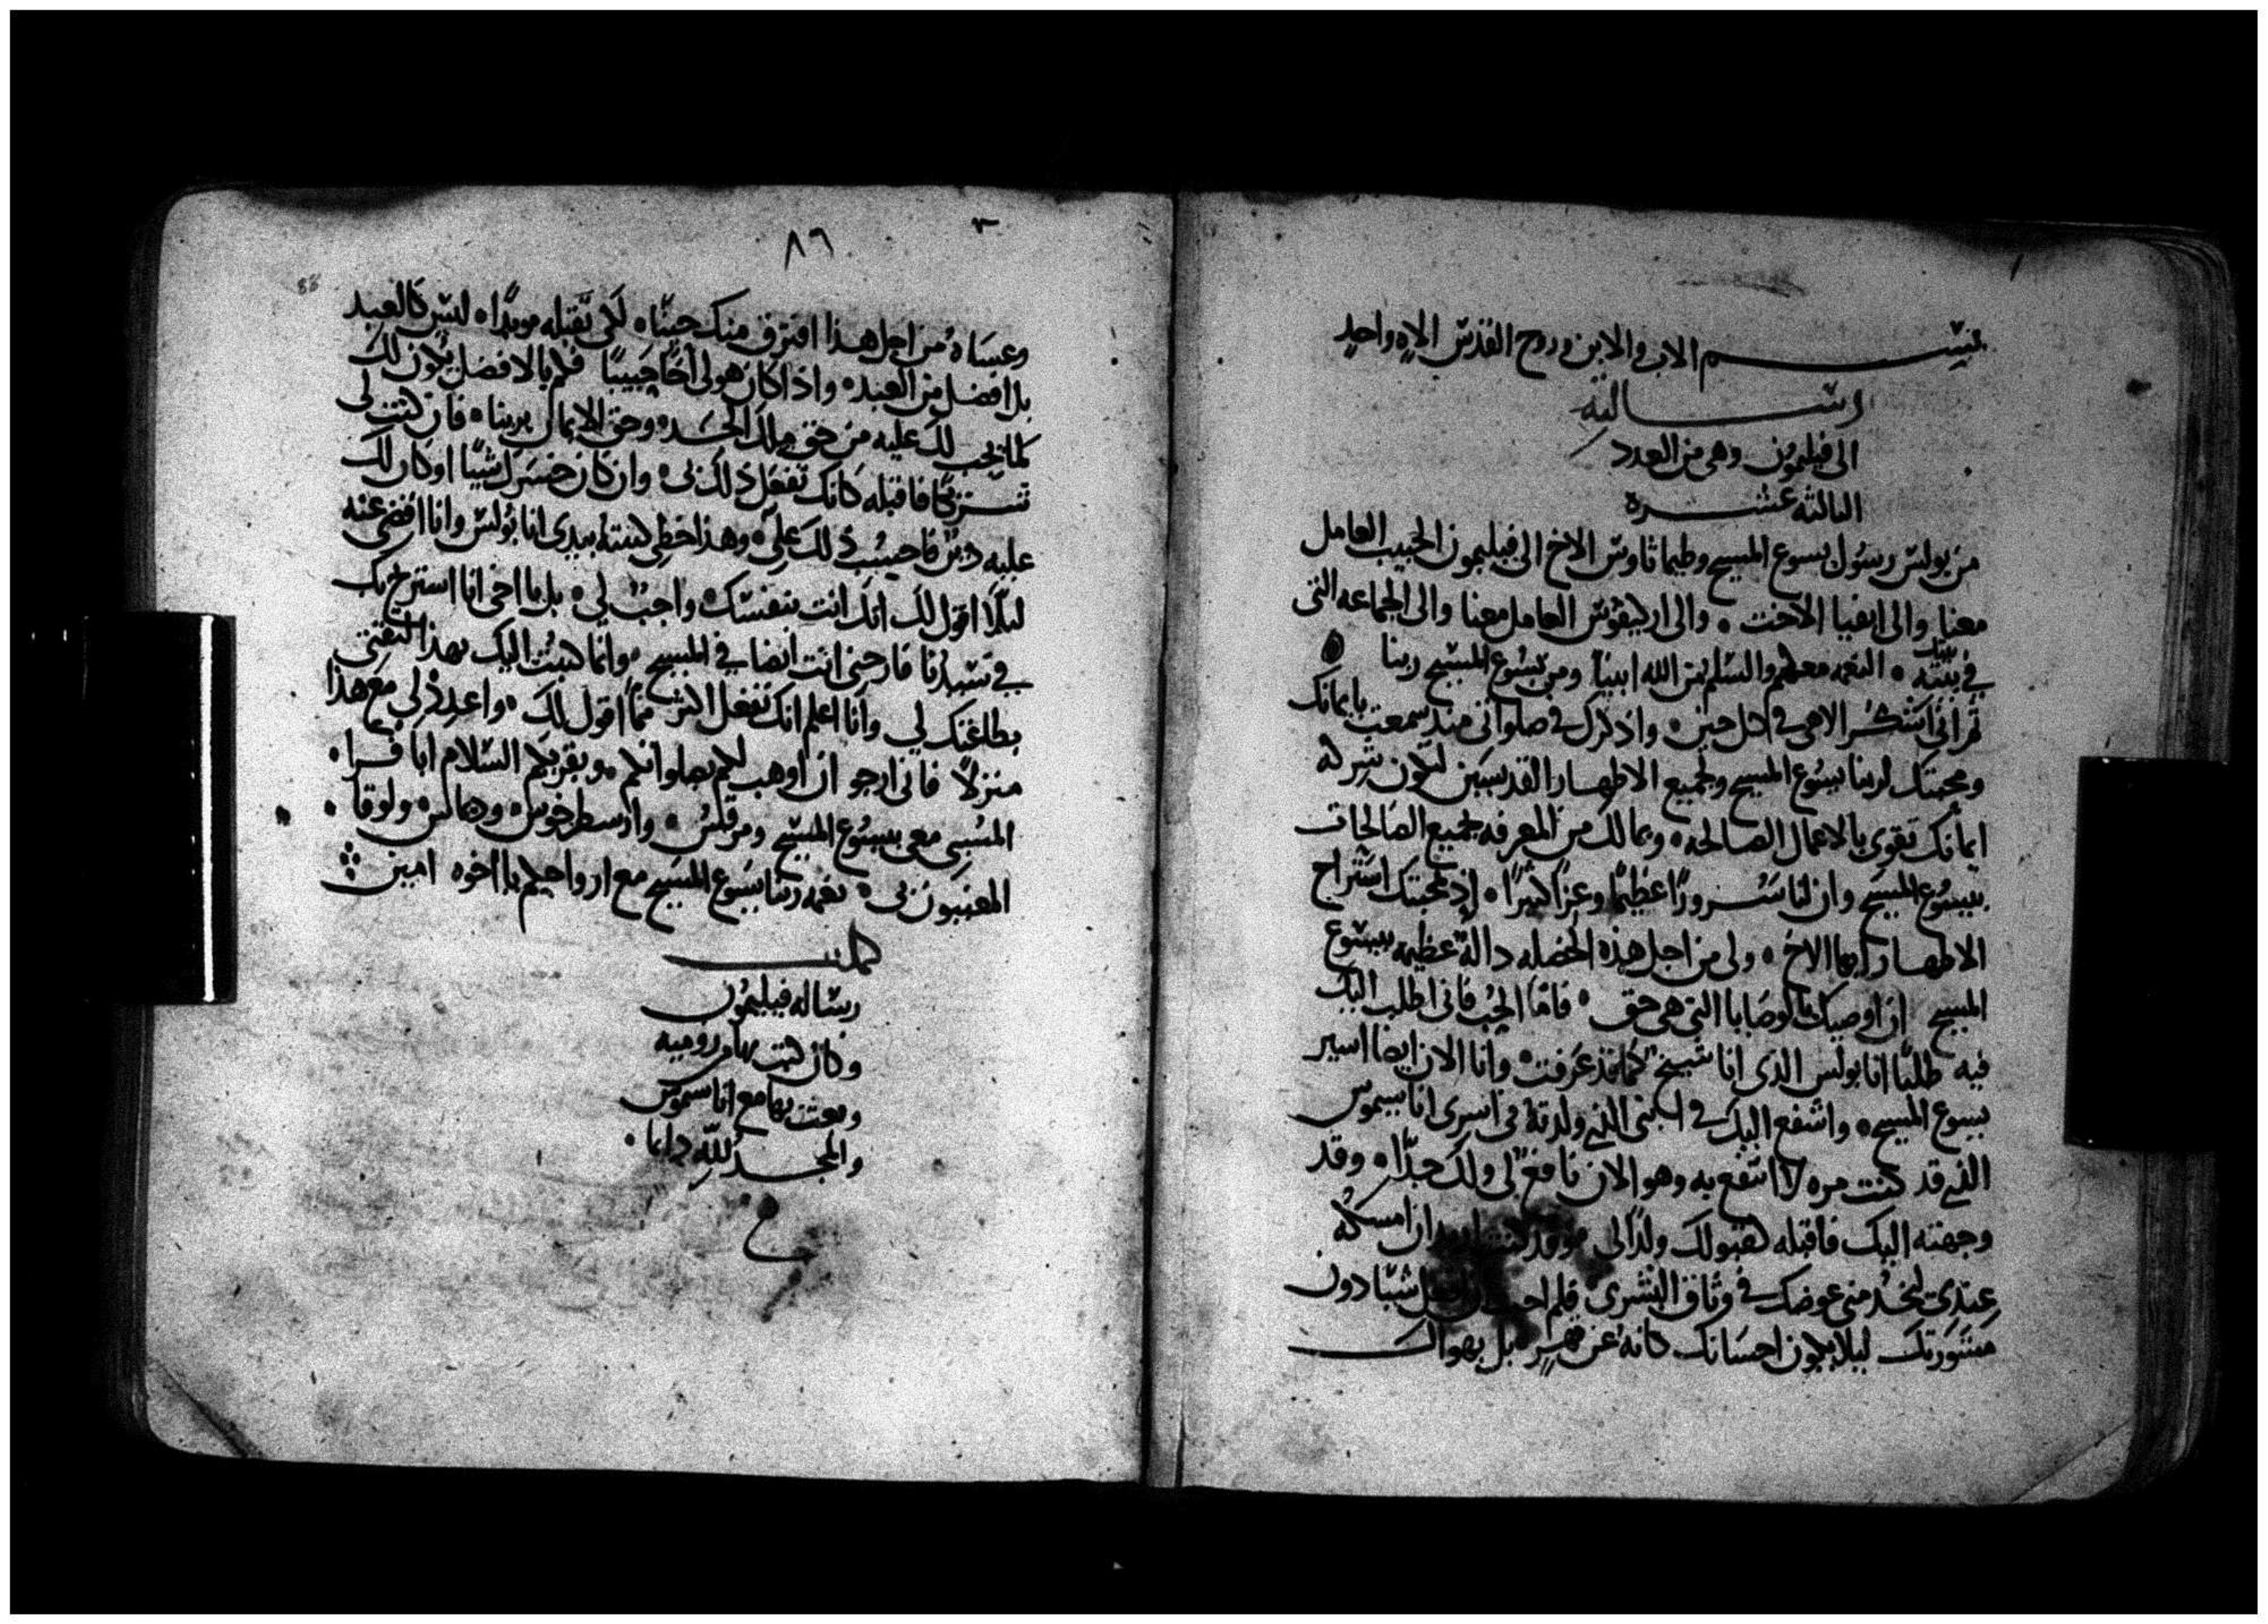 بسم الاب والابن وروح القدس الاه واحد
رسالته
الى فيليمون وهى من العدد
الثالثه عشره
من بولس رسول يسوع المسيح وطيماثاوس الاخ الى فيليمون الحبيب العامل
معنا والى ابفيا الاخت والى ارخيفوس العامل معنا والى الجماعه التى
فى بيته النعمه معكم والسلم من الله ابينا ومن يسوع المسيح ربنا
بيتك
ثم انى اشكر الاهى فى كل حين واذكرك فى صلواتى منذ سمعت بايمانك
ومحبتك لربنا يسوع المسيح ولجميع الاطهار القديسين لتكون شركه
ايمانك تقوى بالاعمال الصالحه وبمالك من المعرفه بجميع الصالحات
بيسوع المسيح وان لنا سرورًا عظيمًا وعزاً كثيرًا اذ بمحبتك استراح
الاطهار ايها الاخ ولى من اجل هذه الخصله دالة عظيمه بيسوع
المسيح ان اوصيك بالوصايا التى هى حق فاما الحب فانى اطلب اليك
فيه طلبًا انا بولس الذى انا شيخ كما قد عرفت وانا الان ايضا اسير
يسوع المسيح واشفع اليك فى ابنى الذى ولدته فى اسرى اناسيموس
الذى قد كنت مره لا انتفع به وهو الان نافع لى ولك جدًا وقد
وجهته اليك فاقبله كقبولك ولدًا لى وقد كنت اريد ان امسكه
عندى ليخدمنى عوضك فى وثاق البشرى فلم احب ان افعل شيئا دون
مشورتك ليلا يكون احسانك كانه عن قهرٍ بل بهواك
٨٦
86
وعساه من اجل هذا افترق منك حينًا لكى تقبله موبدًا ليس كالعبد
بل افضل من العبد واذا كان هو لى اخًا حبيبًا فكم بالافضل يكون لك
كما يجب لك عليه من حق ملك الجسد وحق الايمان بربنا فان كنت لى
شريكًا فاقبله كانك تفعل ذلك بى وان كان خسرك شيًا او كان لك
عليه دين فاحسب ذلك على وهذا خطى كتبته بيدى انا بولس وانا اقضى عنه
ليلا اقول لك انك انت بنفسك واجب لى بل يا اخى انا استريح بك
فى سيدنا فارحنى انت ايضا فى المسيح وانما كتبت اليك بهذا لثقتى
بطاعتك لى وانا اعلم انك تفعل اكثر مما اقول لك واعدد لى مع هذا
منزلًا فانى ارجو ان اوهب لكم بصلواتكم ويقريكم السلام ابافرا
المسبى معى بيسوع المسيح ومرقس وارسطرخوس ودماس ولوقا
المعينون لى نعمة ربنا يسوع المسيح مع ارواحكم يا اخوه امين
كملت
رساله فيليمون
وكان كتب بها من روميه
وبعث بها مع اناسموس
والمجد لله دايما